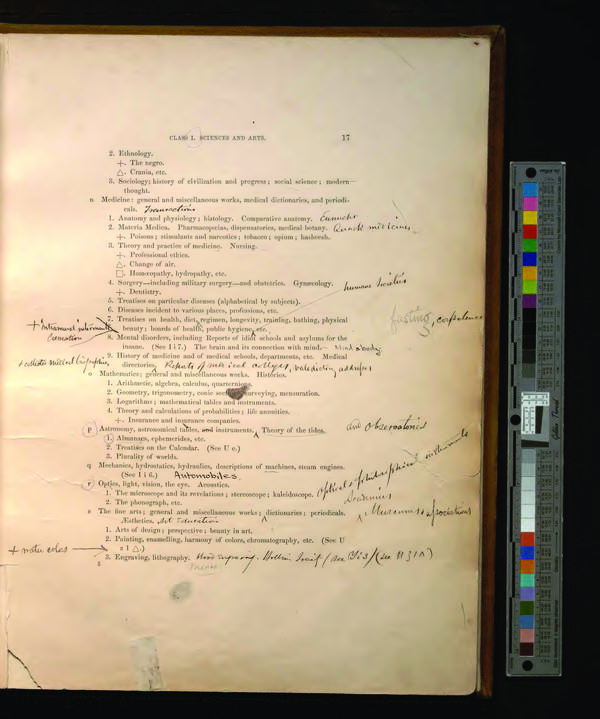 CLASS I. SCIENCES AND ARTS. 17
2. Ethnology.
+. The negro.
△. Crania, etc.
3. Sociology; history of civilization and progress; social science; modern
thought.
n Medicine: general and miscellaneous works, medical dictionaries, and periodi-
cals. Transactions
1. Anatomy and physiology; histology. Comparative anatomy. Eunuchs
2. Materia Medica. Pharmacopœias, dispensatories, medical botany. Quack medicines
+. Poisons; stimulants and narcotics; tobacco; opium; hasheesh.
3. Theory and practice of medicine. Nursing.
+. Professional ethics.
△. Change of air.
□. Homœopathy, hydropathy, etc.
4. Surgery—including military surgery—and obstetrics. Gynæcology. humane societies
+. Dentistry.
5. Treatises on particular diseases (alphabetical by subjects).
6. Diseases incident to various places, professions, etc.
7. Treatises on health, diet, regimen, longevity, training, bathing, physical fasting, corpulence
+ intramural interments
Cremation
beauty; boards of health, public hygiene, etc.
8. Mental disorders, including Reports of idiot schools and asylums for the
insane. (See I i 7.) The brain and its connection with mind. - Mind & body
9. History of medicine and of medical schools, departments, etc. Medical
+ collective medical biographies,
directories. Reports of medical colleges, valedictory addresses
o Mathematics; general and miscellaneous works. Histories.
1. Arithmetic, algebra, calculus, quaternions.
2. Geometry, trigonometry, conic sections, surveying, mensuration.
3. Logarithms; mathematical tables and instruments.
4. Theory and calculations of probabilities; life annuities.
+. Insurance and insurance companies.
p Astronomy, astronomical tables, and instruments, Theory of the tides. and observatories
1. Almanacs, ephemerides, etc.
2. Treatises on the Calendar. (See U c.)
3. Plurality of worlds.
q Mechanics, hydrostatics, hydraulics, descriptions of machines, steam engines.
(See I i 6.) Automobiles.
r Optics, light, vision, the eye. Acoustics. optical & philosophical instruments
1. The microscope and its revelations; stereoscope; kaleidoscope.
2. The phonograph, etc.
s The fine arts; general and miscellaneous works; dictionaries; periodicals. Museums & associations
Æsthetics. Art Education
1. Arts of design; perspective; beauty in art.
2. Painting, enamelling, harmony of colors, chromatography, etc. (See U
+ water colors
z 1 △.)
3. Engraving, lithography. Wood engraving.